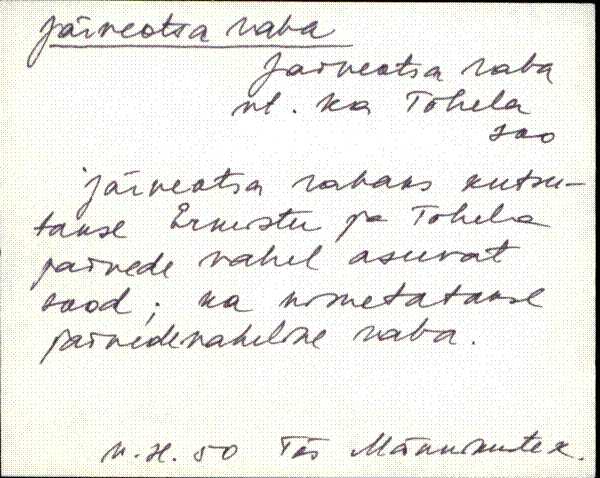 Järveotsa raba
Järveotsa raba
vt. ka Tõhela
soo
Järveotsa rabaks kutsu-
takse Ermistu ja Tõhela
järvede vahel asuvat
sood; ka nimetatakse
järvedevaheline raba.
50 Tõs